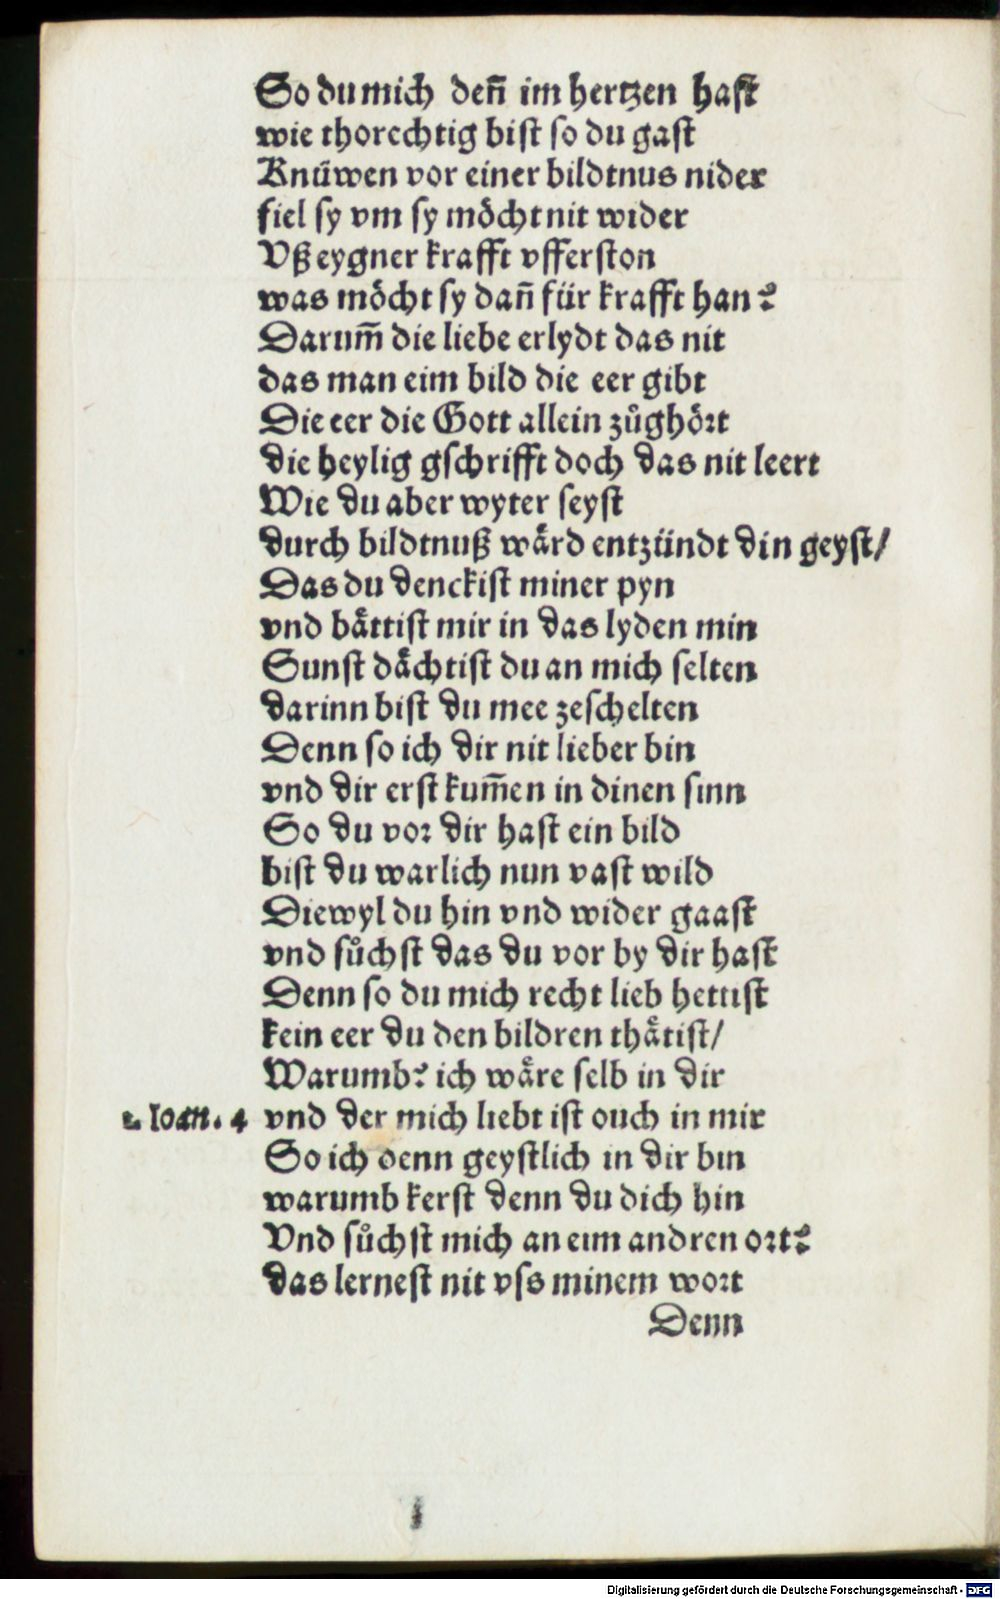 So du mich deñ im hertzen hast
wie thorechtig bist so du gast
Knüwen vor einer bildtnus nider
fiel sy vm sy möcht nit wider
Vß eygner krafft vfferston
was möcht sy dañ für krafft han?
Darum̃ die liebe erlydt das nit
das man eim bild die eer gibt
Die eer die Gott allein zůghört
die heylig gschrifft doch das nit leert
Wie du aber wyter seyst
durch bildtnuß wård entzündt din geyst/
Das du denckist miner pyn
vnd båttist mir in das lyden min
Sunst dåchtist du an mich selten
darinn bist du mee zeschelten
Denn so ich dir nit lieber bin
vnd dir erst kum̃en in dinen sinn
So du vor dir hast ein bild
bist du warlich nun vast wild
Diewyl du hin vnd wider gaast
vnd sůchst das du vor by dir hast
Denn so du mich recht lieb hettist
kein eer du den bildren thåtist/
Warumb? ich wåre selb in dir
1. Ioan. 4 vnd der mich liebt ist ouch in mir
So ich denn geystlich in dir bin
warumb kerst denn du dich hin
Vnd sůchst mich an eim andren ort?
das lernest nit vss minem wort
Denn
Digitalisierung gefördert durch die Deutsche Forschungsgemeinschaft - DFG